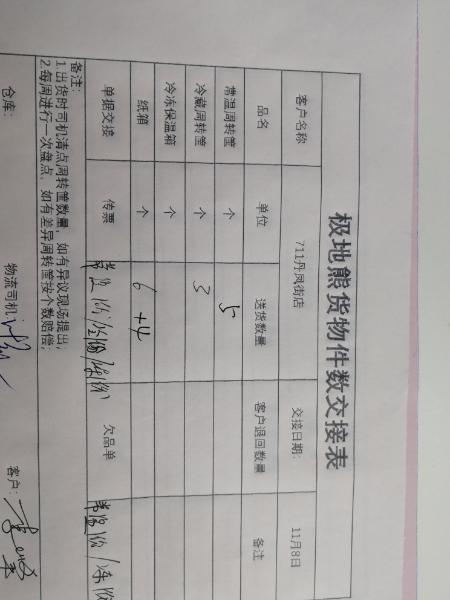 极地熊货物件数交接表
客户名称 711丹凤街店 交接日期: 11月8日
品名 单位 送货数量 客户退回数量 备注
常温周转筐 个 5
冷藏周转筐 个 3
冷冻保温箱 个
纸箱 个 6+4
单据交接 传票 常温 份/冷藏/冻 份 欠品单 常温 份/冻 份
备注:
1.出货时司机清点周转筐数量,如有异议现场提出;
2.每周进行一次盘点,如有差异周转筐按个数赔偿;
仓库: 物流司机: 客户: